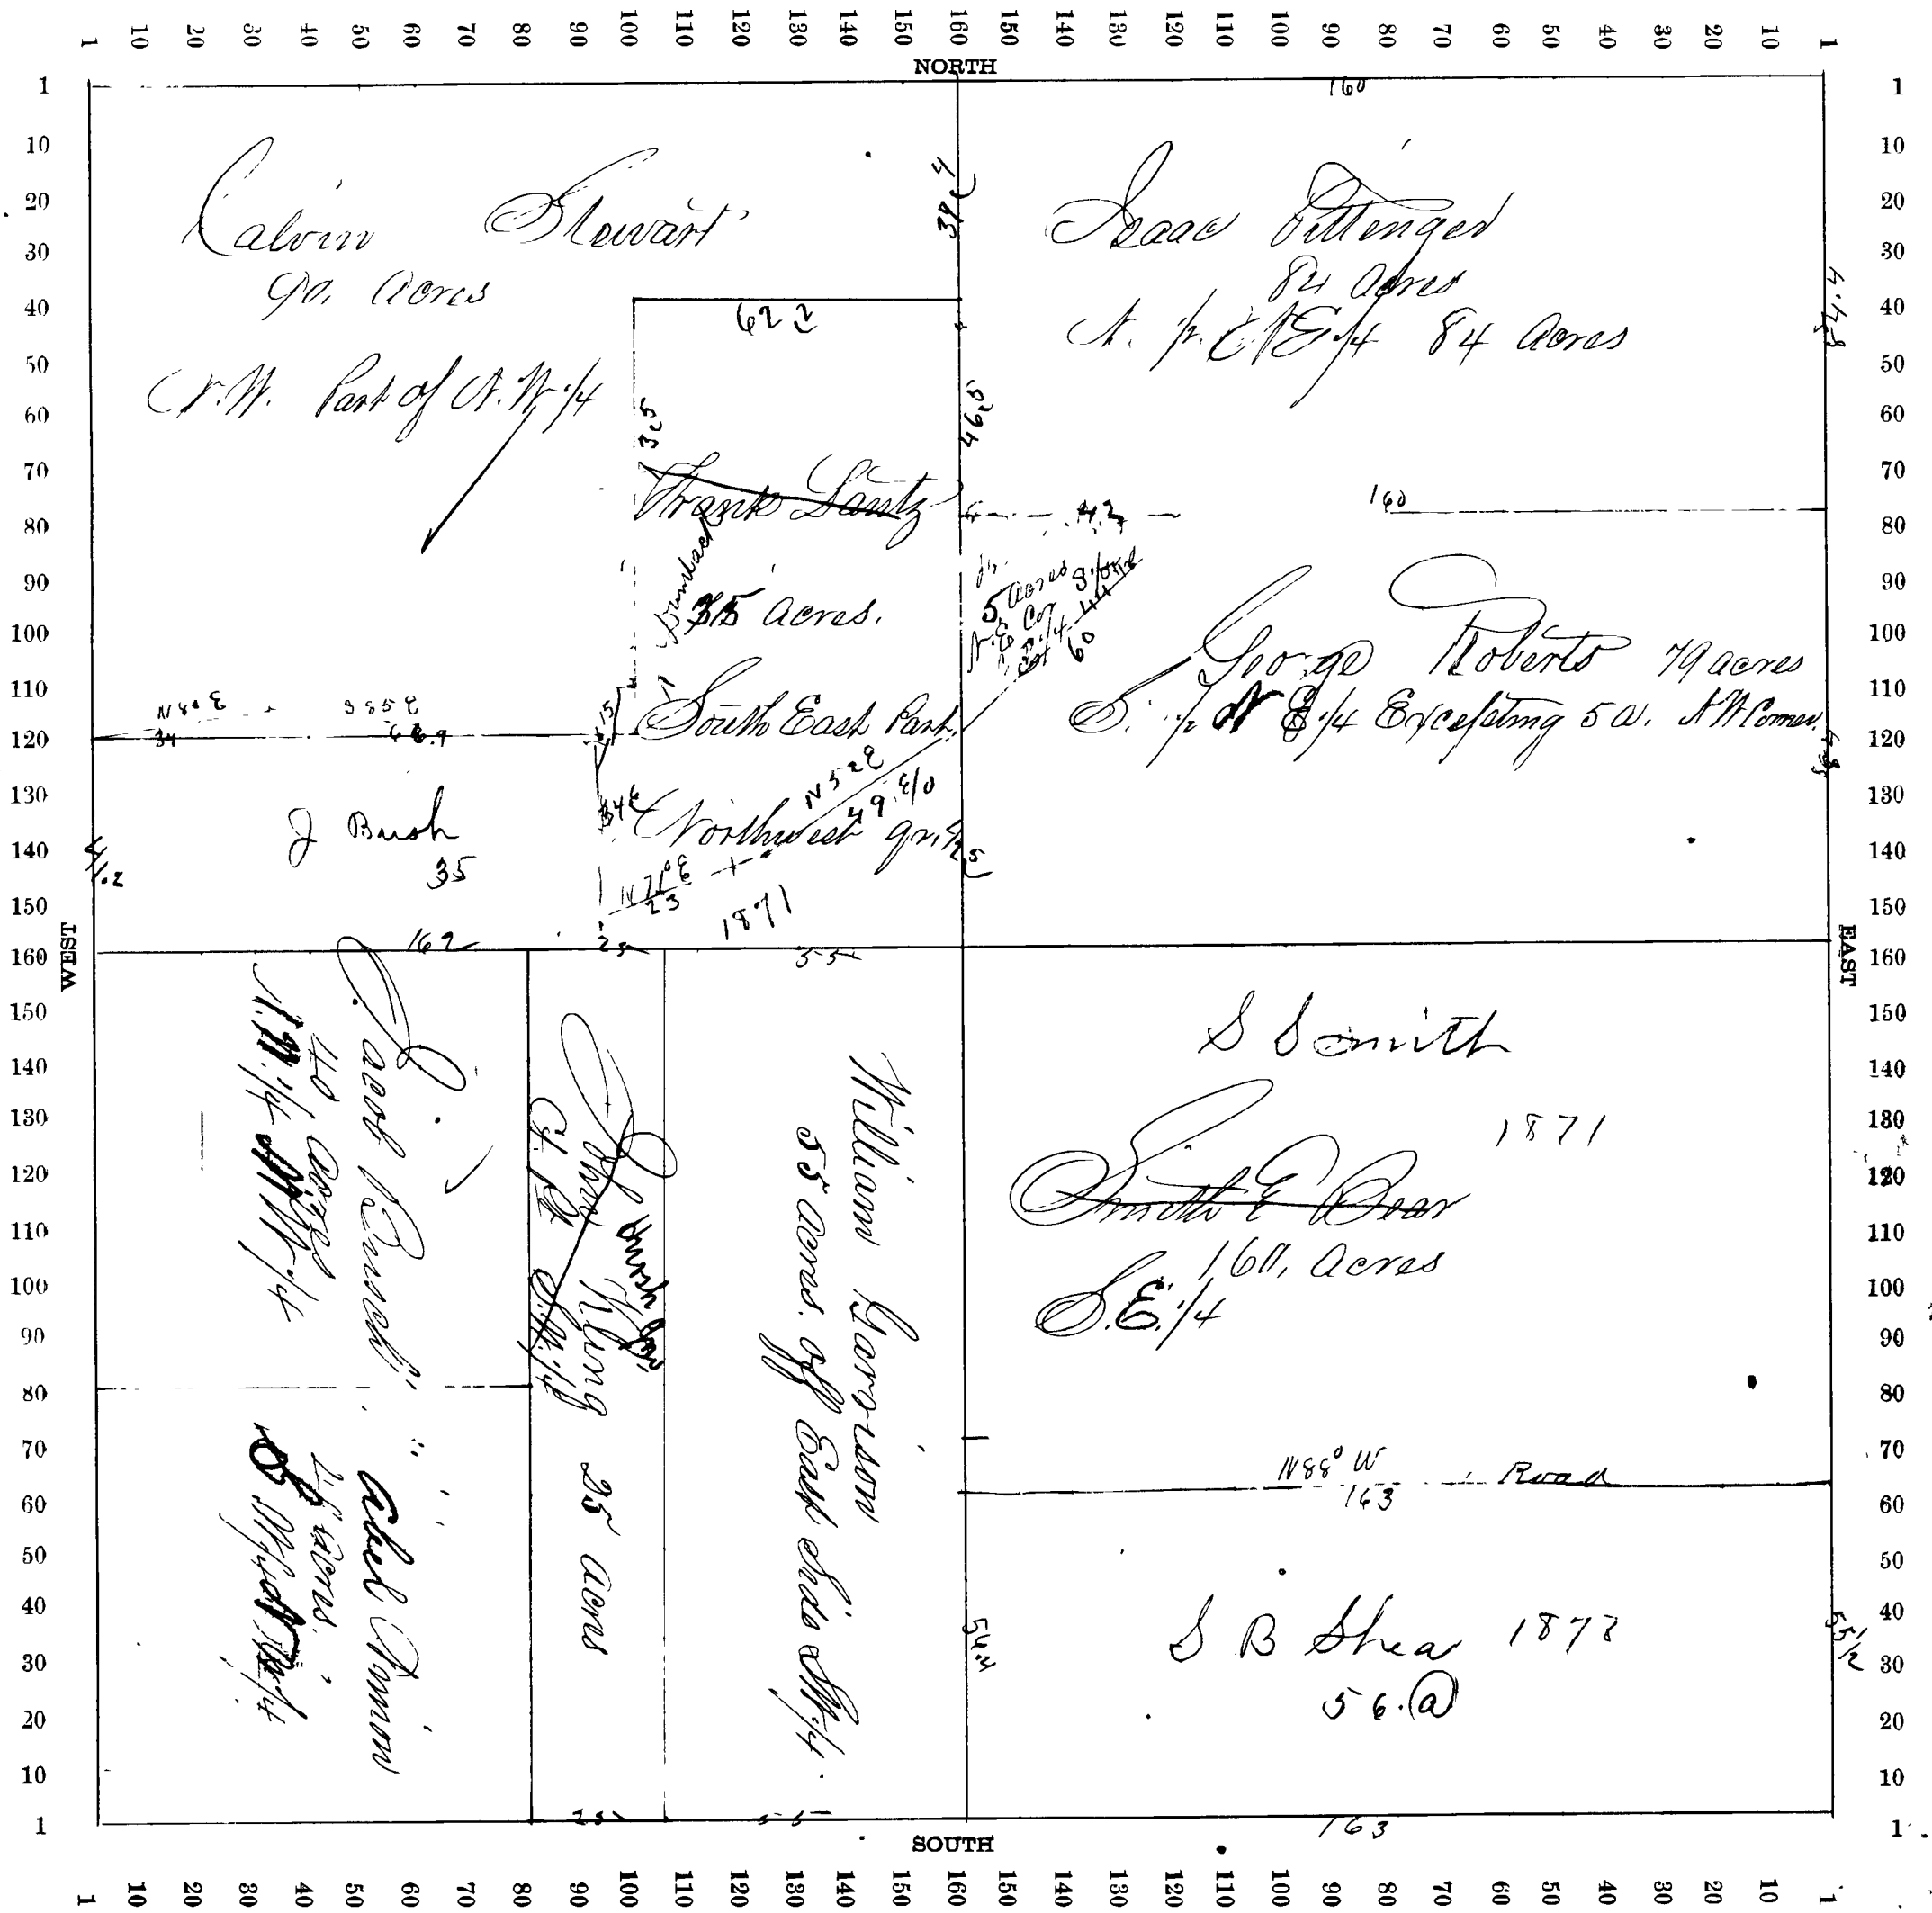 1 10 20 30 40 50 60 70 80 90 100 110 120 130 140 150 160 150 140 130 120 110 100 90 80 70 60 50 40 30 20 10 1
NORTH
1 10 20 30 40 50 60 70 80 90 100 110 120 130 140 150 160 150 140 130 120 110 100 90 80 70 60 50 40 30 20 10 1
WEST
160
Calvin Stewart
90. Acres
N.W. Part of N.W. 1/4
62 2
46.5
35
Frank Lantz
35 acres.
South East Part
Northwest qr.
N 52 E
N 71° E
23
1871
Isaac Pittenger
84 Acres
N. 1/2 N E 1/4 84 Acres
160
42
5 acres
N.E Cor
60
George Roberts 79 acres
S. 1/2 N E 1/4 Excepting 5 a. N W Corner
N 80 E
34
S 85 E
68.9
J Bush
35
162
25
55
Jacob Bussell
40 acres
N.W. 1/4 S.W. 1/4
Abel
acres
John King 25 acres
S.W. 1/4
William Garrison
55 acres off East Side S.W. 1/4
S Smith
1871
Smith E Bear
160, Acres
S.E. 1/4
N 88° W Road
163
54.2
55 1/2
S B Shea 1873
56. a
25
55
163
SOUTH
1 10 20 30 40 50 60 70 80 90 100 110 120 130 140 150 160 150 140 130 120 110 100 90 80 70 60 50 40 30 20 10 1
EAST
1 10 20 30 40 50 60 70 80 90 100 110 120 130 140 150 160 150 140 130 120 110 100 90 80 70 60 50 40 30 20 10 1